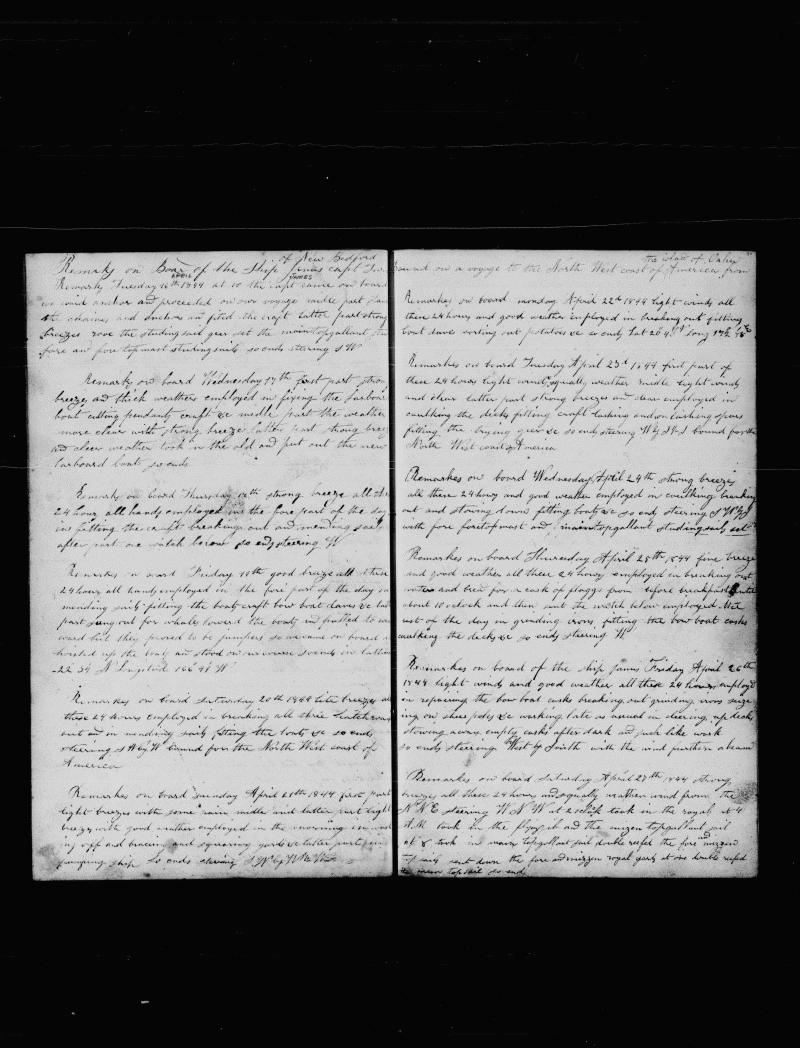 of New Bedford
Remarks on Board of the Ship Janus capt
APRIL JAMES
Remarks Tuesday 16th 1844 at 10 the capt came on board
we anchor and proceeded on our voyage midle part
the chaines and anchors and fited the craft latter part strong
breezes rove the studingsail gear set the maintopgallant
fore an foretopmast studing sails so ends stearing S W
Remarks on board Wednesday 17th first part strong
breezes and thick weather employed in fixing the larboard
boat cutting pendants craft &c midle part the weather
more clear with strong breeze latter part strong breeze
and clear weather took in the old and put out the new
larboard boat so ends
Remarks on board Thursday 18th strong breeze all the
24 hours all hands employed in the fore part of the day
in fitting the craft breaking out and mending sails
after part one watch below so ends steering W
Remarks on board Friday 19th good breeze all these
24 hours all hands employed in the fore part of the day in
mending sails fitting the boats craft bow boat daves &c
part sung out for whales lowered the boats and pulled to
ward but they proved to be jumpers so we came on board
hoisted up the boats an stood on our course so ends in lattitude
22 34 N Longitud 156 41 W
Remarkes on board Satursday 20th 1844 lite breezes all
these 24 hours employed in breaking all three hatchways
out and in mending sails fiting the boats &c so ends
steering S W by W bound for the North West coast of
America
Remarkes on board Sunday April 21st 1844 first part
light breezes with some rain midle and latter part light
breezes with good weather employed in the morning in
ing off and bracing and squareing yards &c latter part in
jumping ship So ends stearing S W by W
the island of Oahu
Bound on a voyage to the North West coast of America from
Remarkes on board monday April 22d 1844 light winds all
these 24 hours and good weather employed in breaking out fitting
boat daves sorting out potatoes &c so ends Lat 20 N Long
Remarkes on board Tuesday April 23d 1844 first part of
these 24 hours light winds squally weather midle light winds
and clear latter part strong breezes and clear employed in
caulking the decks fitting craft lashing and unlashing spars
fitting the trying gear &c so ends steering W by S bound for the
North West coast of America
Remarkes on board Wednesday April 24th strong breezes
all these 24 hours and good weather employed in caulking breaking
out and stowing down fitting boats &c so end steering
with fore foretopmast and maintopgallant studing sails set
Remarkes on board Thursday April 25th 1844 fine breeze
and good weather all these 24 hours employed in breaking out
water and beef for a cask of flaggs from before breakfast until
about 10 oclock and then sent the watch below employed the
rest of the day in grinding irons, fitting the bow boat casks
caulking the decks &c so ends steering W
Remarkes on board of the ship Janus Friday April 26th
1844 light winds and good weather all these 24 hours employd
in repairing the bow boat casks breaking out grinding irons seize
ing on shees poles &c working late as usual in clearing up decks
stowing away empty casks after dark and such like work
so ends steering West by South with the wind purther abeam
Remarkes on board Saturday April 27th 1844 strong
breezes all these 24 hours and squally weather wind from the
N N E steering W N W at 2 oclock took in the royal at 4
A.M. took in the flyingjib and the mizen topgallant sail
at 8 took in main topgallant sail double reefed the fore mizzen
topsails sent down the fore and mizzen royal yards at one double reefed
the main topsail so ends